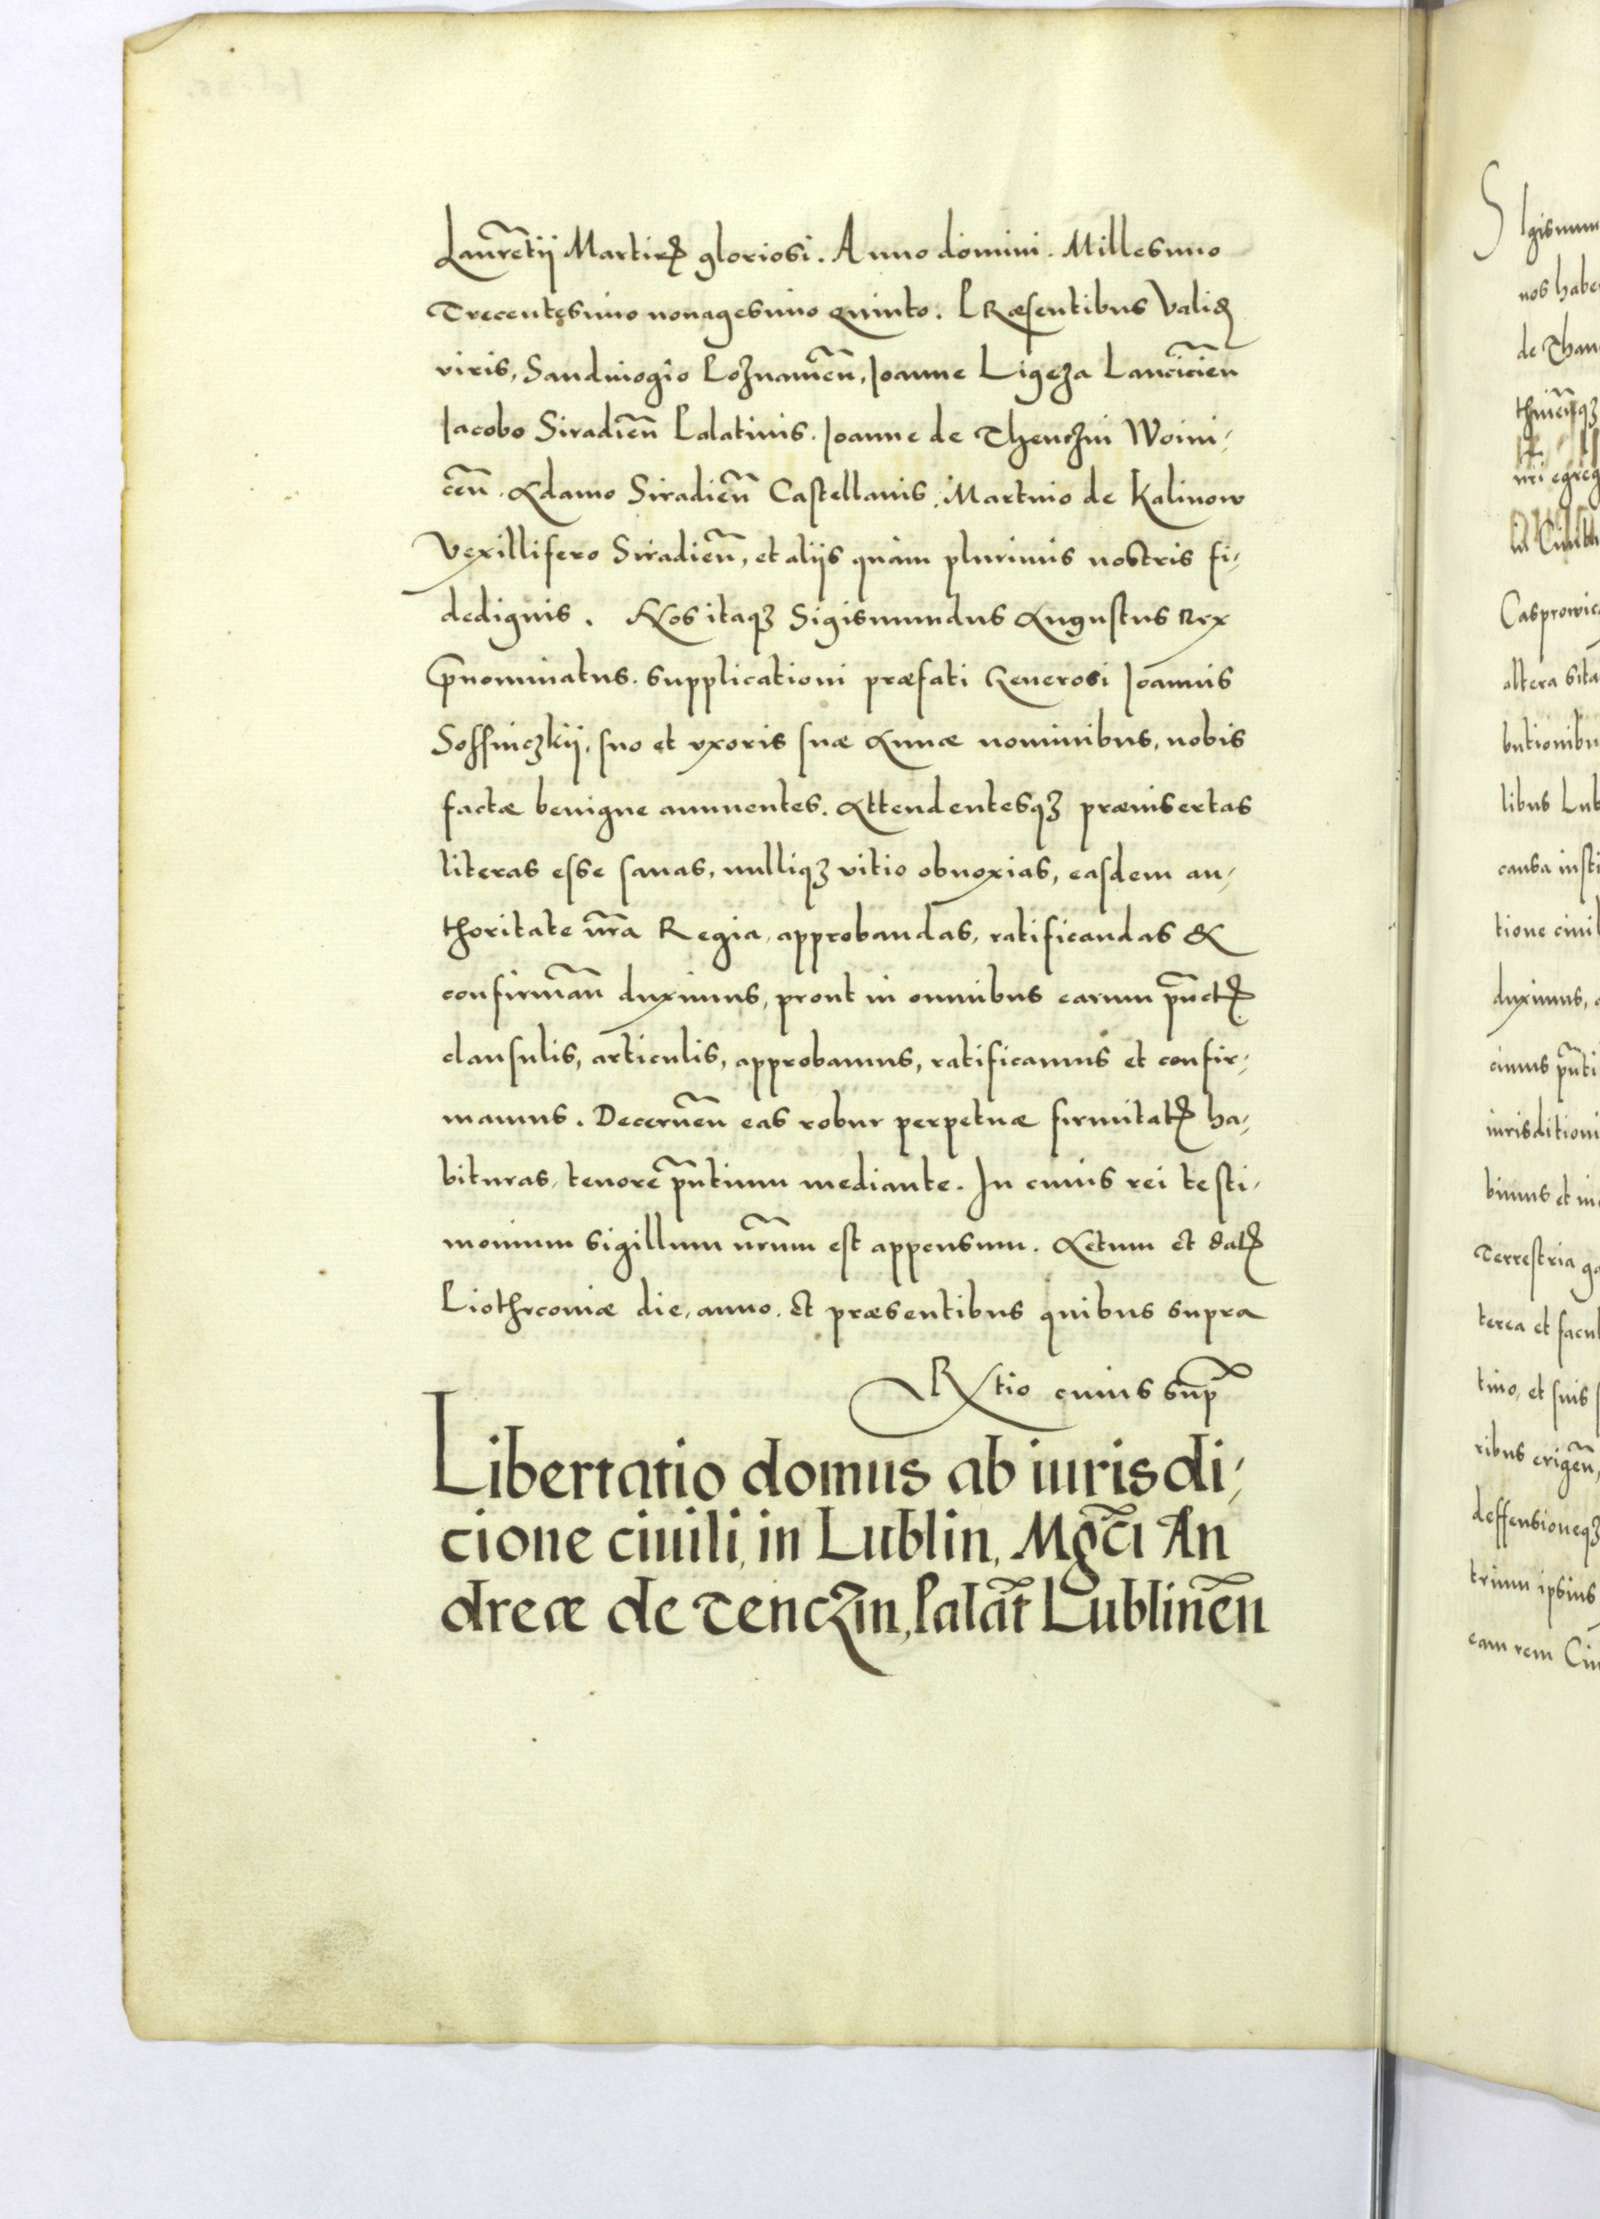 Laur̃etij Martirꝭ gloriosi. Anno domini. Millesimo
Trecentesimo nonagesimo quinto. PRæsentibus Validꝭ
viris, Sandiuogio Poznanieñ, Ioanne Ligeza Lancicieñ
Iacobo Siradieñ Palatinis. Ioanne de Thenczin Woini-
ceñ. Adamo Siradieñ Castellanis. Martino de Kalinow
Vexillifero Siradieñ, et aliis quàm plurimis nostris fi-
dedignis. Nos itaqꝫ Sigismundus Augustus Rex
Prænominatus. supplicationi præfati Generosi Ioannis
Soffniczkij, suo et vxoris suæ Annæ nominibus, nobis
factæ benigne annuentes. Attendentesqꝫ præinsertas
literas esse sanas, nulliqꝫ vitio obnoxias, easdem au-
thoritate nr̃a Regia, approbandas, ratificandas &
confirmañ duximus, prout in omnibus earum punctꝭ
clausulis, articulis, approbamus, ratificamus et confir-
mamus. Decerneñ eas robur perpetuæ firmitatꝭ ha-
bituras, tenore pñtium mediante. In cuius rei testi-
monium sigillum nr̃um est appensum. Actum et datꝭ
Piothrcouiæ die, anno. et præsentibus quibus supra
Rtio cuius sup̃
Libertatio domus ab iurisdi-
cione ciuili, in Lublin, Mgc̃i An
dreæ de Tenczin, Palat̃ Lublineñ
Sigismun
nos habe
de Than
nri egreg
Casprowic
altera sita
butionibu
libus Lub
causa insti
tione ciuil
duximus,
cimus pñti
iurisditioni
bimus et in
Terrestria ga
terea et facul
tino, et suis
ribus erigeñ,
deffensioneqꝫ
trium ipsius
eam rem Ciu